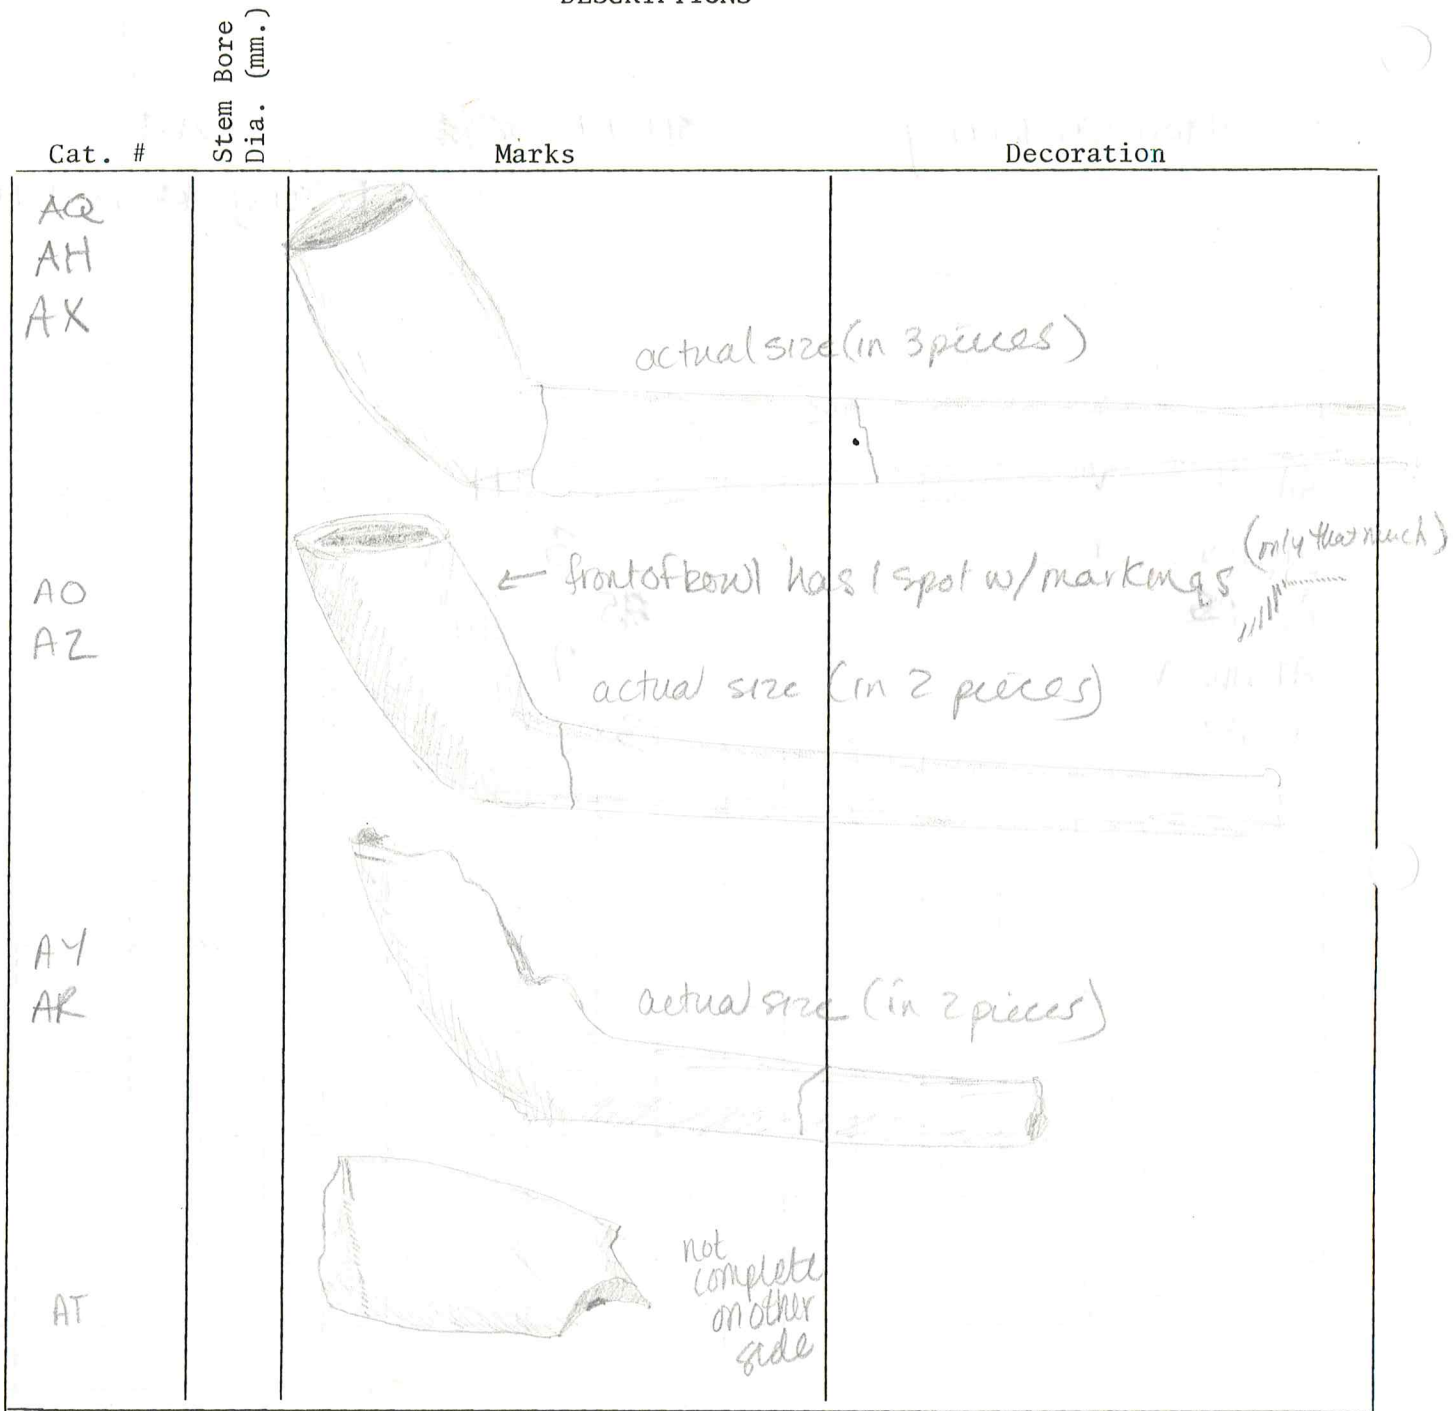 DESCRIPTIONS
Stem Bore
Dia. (mm.)
Cat. #
Marks
Decoration
AQ
AH
AX
actual size (in 3 pieces)
AO
AZ
← front of bowl has 1 spot w/ markings (only that much)
actual size (in 2 pieces)
AY
AR
actual size (in 2 pieces)
AT
not
complete
on other
side